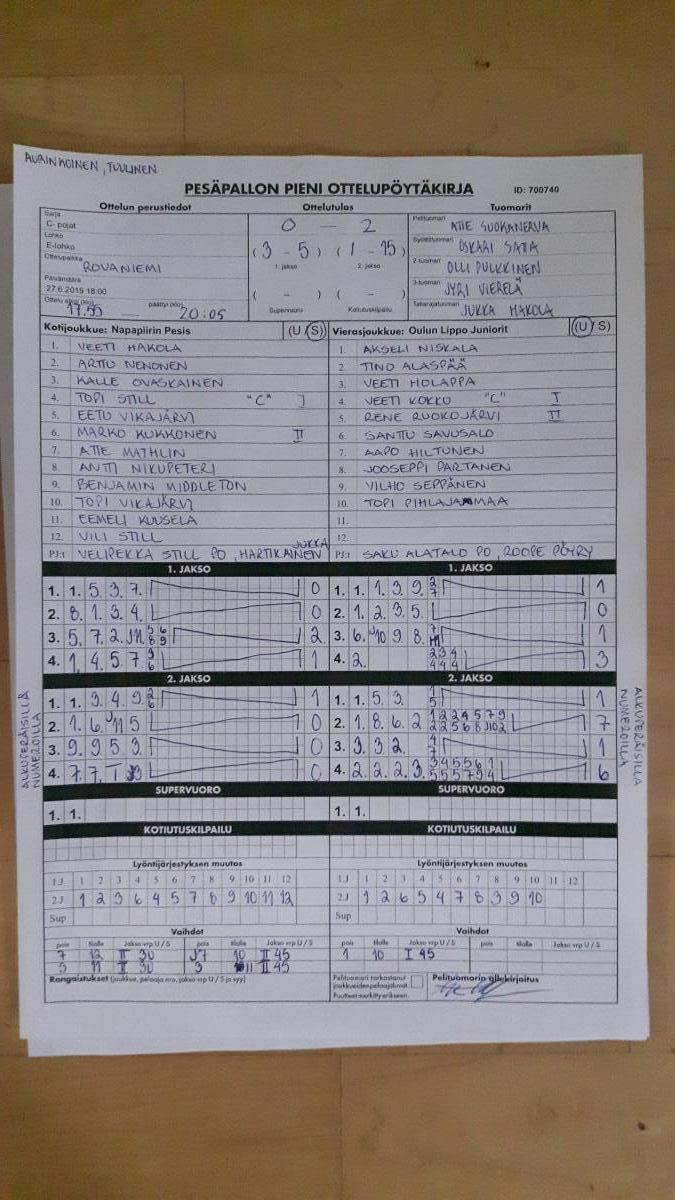 AURINKOINEN, TUULINEN
PESÄPALLON PIENI OTTELUPÖYTÄKIRJA ID: 700740
Ottelun perustiedot Ottelutulos Tuomarit
Sarja
C- pojat
Lohko
E-lohko
Ottelupaikka
ROVANIEMI
Päivämäärä
27.6.2019 18:00
Ottelu alkoi (klo) 17.55 päättyi (klo) 20:05
0 - 2
(3 - 5) (1 - 15)
1. jakso 2. jakso
( - ) ( - )
Supervuoro Kotiutuskilpailu
Pelituomari ATTE SUOKANERVA
Syöttötuomari OSKARI
2-tuomari OLLI PULKKINEN
3-tuomari JYRI VIERELÄ
Takarajatuomari JUKKA HAKOLA
Kotijoukkue: Napapiirin Pesis (U / S) Vierasjoukkue: Oulun Lippo Juniorit (U / S)
1. VEETI HAKOLA 1. AKSELI NISKALA
2. ARTTU NENONEN 2. TINO ALASPÄÄ
3. KALLE OVASKAINEN 3. VEETI HOLAPPA
4. TOPI STILL "C" I 4. VEETI KOKKO "C" I
5. EETU VIKAJÄRVI 5. RENE RUOKOJÄRVI II
6. MARKO KUKKONEN II 6. SANTTU SAVUSALO
7. ATTE MATHLIN 7. AAPO HILTUNEN
8. ANTTI NIKUPETERI 8. JOOSEPPI PARTANEN
9. BENJAMIN MIDDLETON 9. VILHO SEPPÄNEN
10. TOPI VIKAJÄRVI 10. TOPI PIHLAJAMAA
11. EEMELI KUUSELA 11.
12. VILI STILL 12.
PJ:t VELIPEKKA STILL PO, JUKKA HARTIKAINEN PJ:t SAKU ALATALO PO, ROOPE PÖYRY
1. JAKSO 1. JAKSO
1. 1. 5. 3. 7. 0 1. 1. 1. 3. 9. 2 7 1
2. 8. 1. 3. 4. 0 2. 1. 2. 3. 5. 0
3. 5. 7. 2. 2 3. 6. 9. 8. 1
4. 1. 4. 5. 7. 9 6 1 4. 2. 2 3 4 4 4 4 3
2. JAKSO 2. JAKSO
1. 1. 3. 4. 9. 2 6 1 1. 1. 5. 3. 1 5 1
2. 1. 6. 0 2. 1. 8. 6. 2 7
3. 9. 9 5 3 0 3. 3. 3 2. 4 7 1
4. 7. 7. 0 4. 2. 2. 2. 3. 6
ALKUPERÄISILLÄ NUMEROILLA
ALKUPERÄISILLÄ NUMEROILLA
SUPERVUORO SUPERVUORO
1. 1. 1. 1.
KOTIUTUSKILPAILU KOTIUTUSKILPAILU
Lyöntijärjestyksen muutos Lyöntijärjestyksen muutos
1.J 1 2 3 4 5 6 7 8 9 10 11 12 1.J 1 2 3 4 5 6 7 8 9 10 11 12
2.J 1 2 3 6 4 5 7 8 9 10 11 12 2.J 1 2 6 5 4 7 8 3 9 10
Sup Sup
Vaihdot Vaihdot
pois tilalle Jakso vrp U / S pois tilalle Jakso vrp U / S pois tilalle Jakso vrp U / S pois tilalle Jakso vrp U / S
7 12 II 30 10 II 45 1 10 I 45
11 II 30 3 11 II 45
Rangaistukset (joukkue, pelaaja nro, jakso vrp U / S ja syy)
Pelituomari tarkastanut joukkueiden pelaajaluvat.
Puutteet merkitty erikseen.
Pelituomarin allekirjoitus